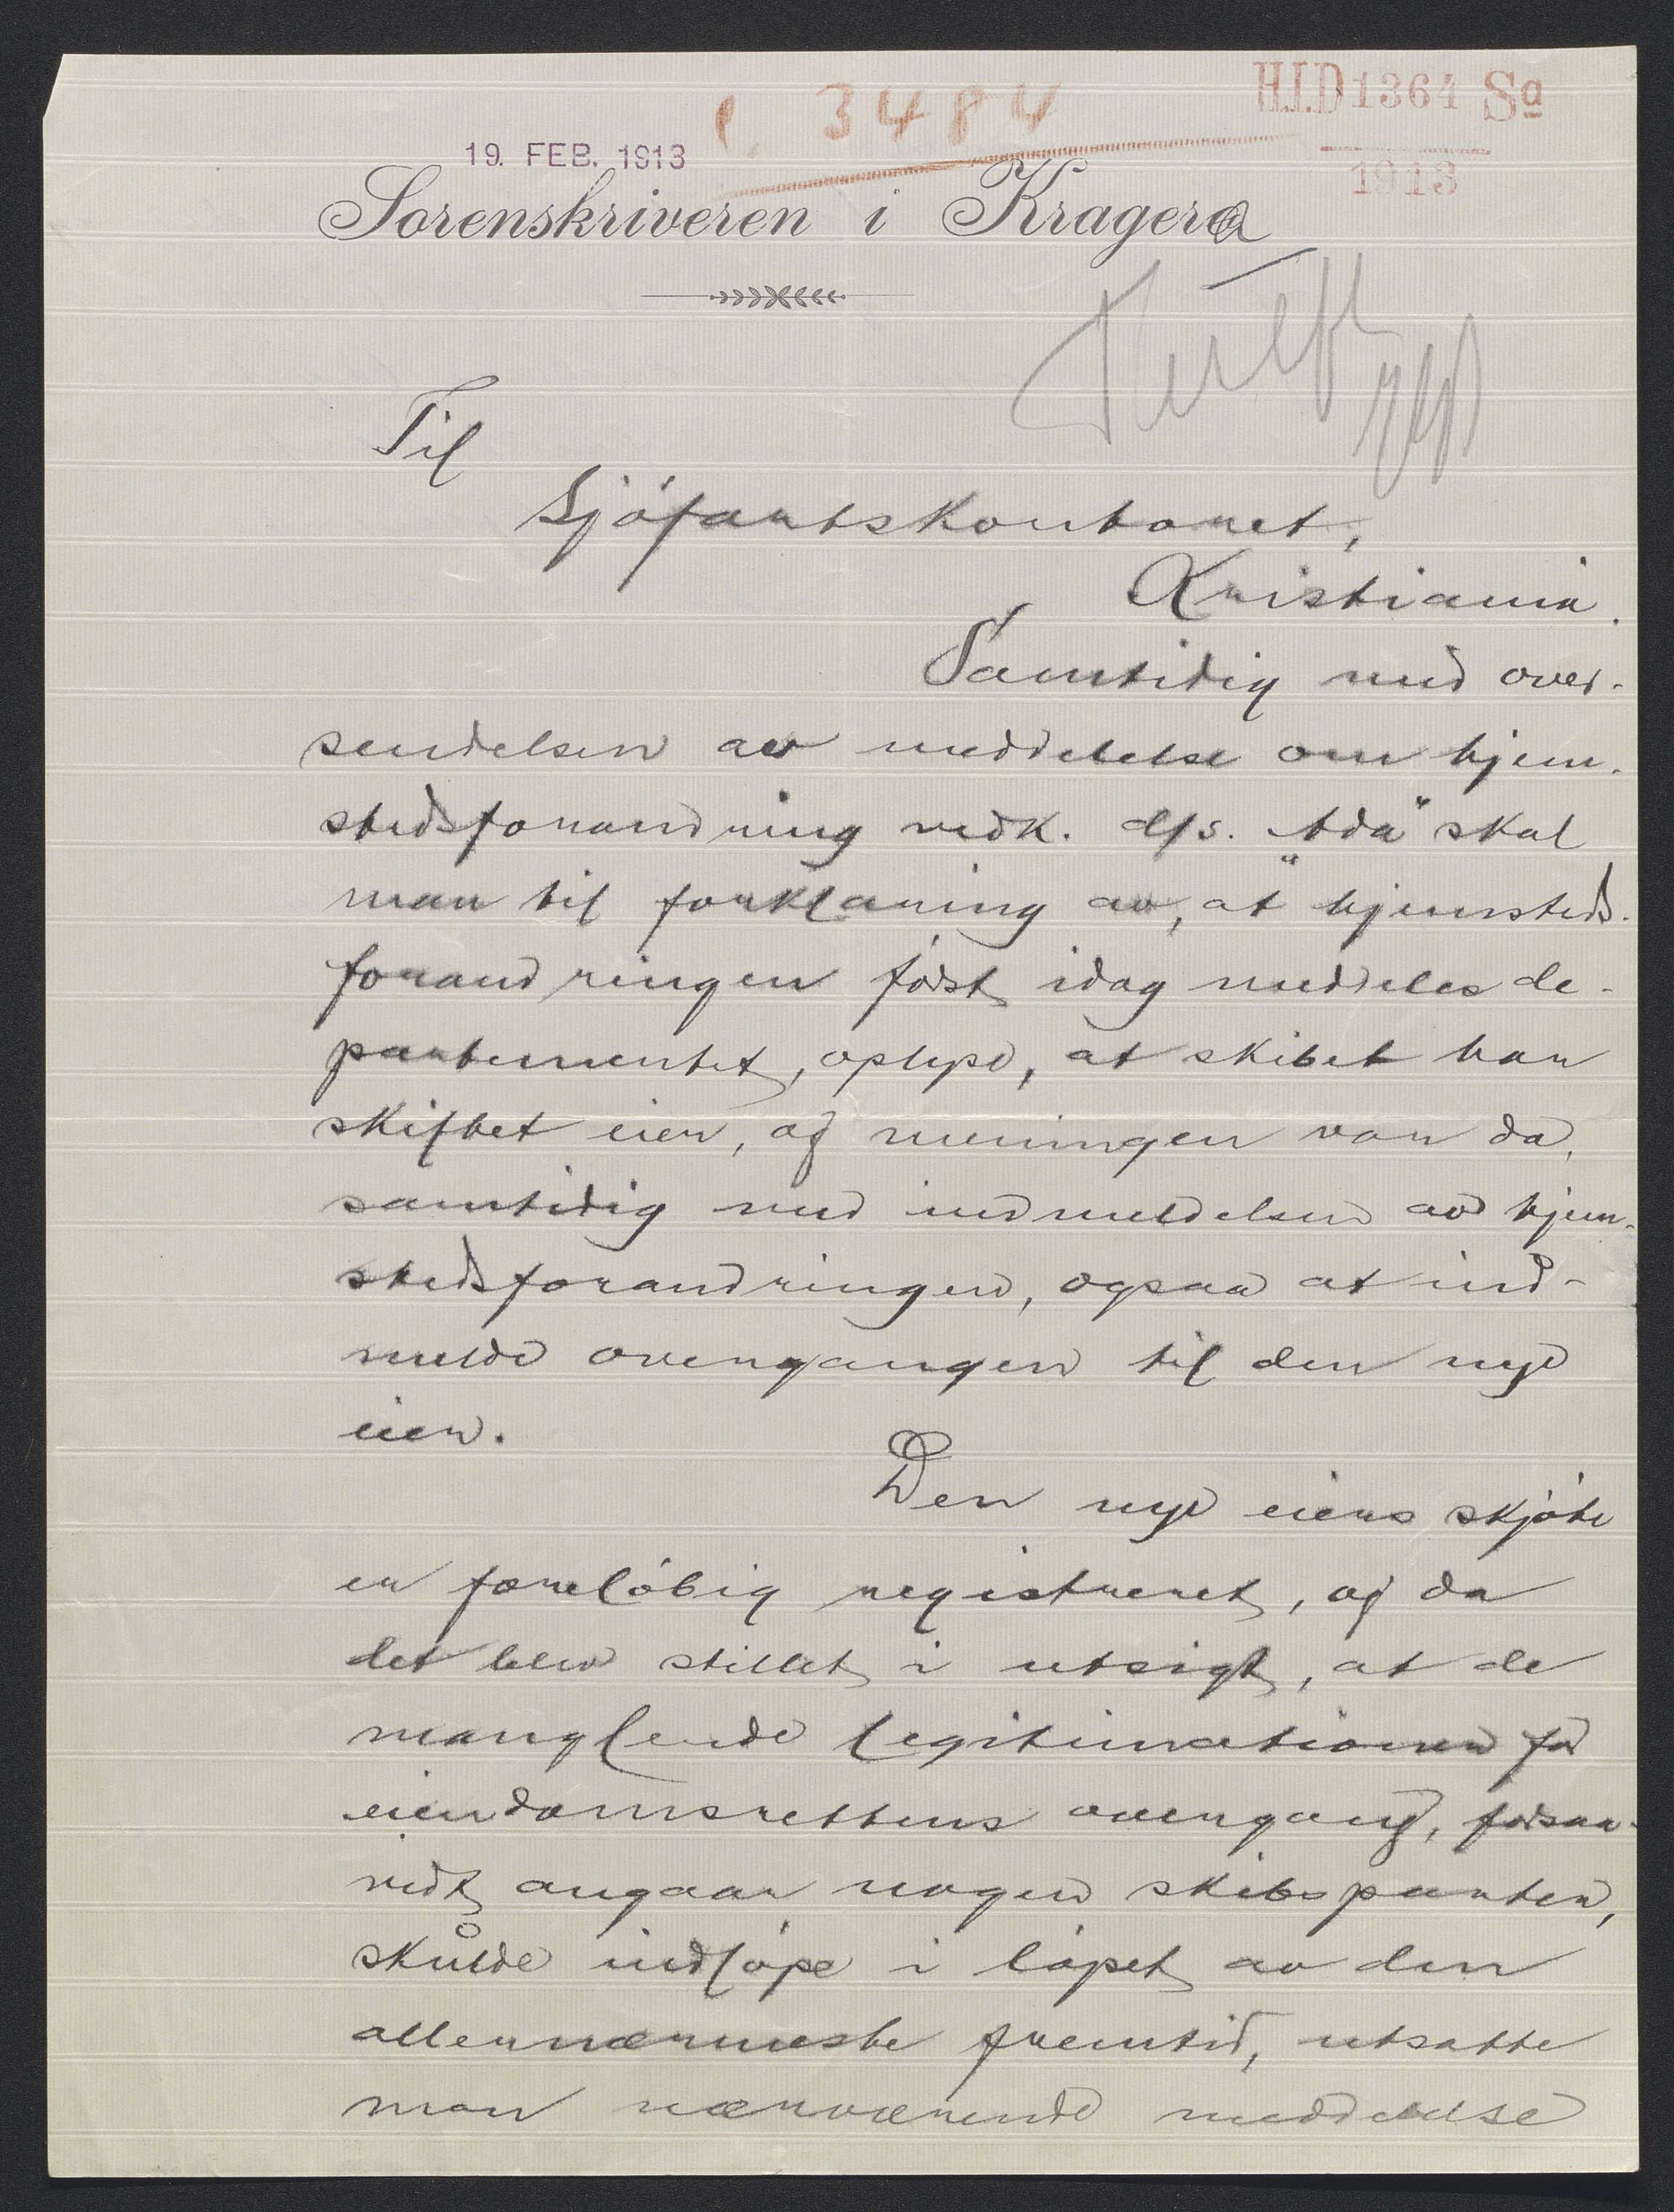 3484
H.J.D 1364 Sa
1913
19. FEB. 1913
Sorenskriveren i Kragerø
Til
Sjøfartskontoret,
Kristiania.
Samtidig med over-
sendelsen av meddelelse om hjem-
stedsforandring vedk. d/s. "Ada" skal
man til forklaring av, at hjemsteds-
forandringen først idag meddeles de-
partementet, oplyse, at skibet har
skiftet eier, og meningen var da,
samtidig med indmeldelsen av hjem-
stedsforandringen, ogsaa at ind-
melde overgangen til den nye
eier.
Den nye eiers skjøte
er foreløbig registreret, og da
det blev stillet i utsigt, at de
manglende legitimationer for
eiendomsrettens overgang, forsaa-
vidt angaar nogen skibsparter,
skulde indløpe i løpet av den
allernærmeste fremtid, utsatte
man nærværende meddelelse